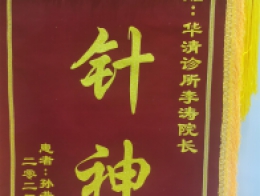 华清诊所李涛院长
针神
患者：孙
二零二